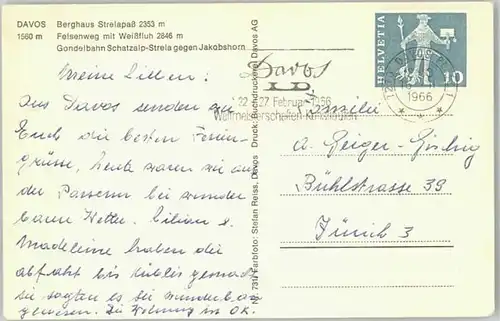 DAVOS Berghaus Strelapaß 2353 m
1560 m Felsenweg mit Weißfluh 2846 m
Gondelbahn Schatzalp-Strela gegen Jakobshorn
Meine Lieben!
Aus Davos senden wir
Euch die besten Ferien-
grüsse, heute waren wir auf
der Parsenn bei wunder
barem Wetter.
Madeleine haben die
abfahrt bis Küblis gemacht
sie sagten es sei wunderbar
gewesen. Die Wohnung ist OK.
Nr. 731 Farbfoto: Stefan Reiss, Davos Druck: Buchdruckerei Davos AG
Davos
22.-27. Februar 1966
Weltmeisterschaften Kunstlauf
HELVETIA
10
1966
Familie
A. Geiger-
Bühlstrasse 39
Zürich 3